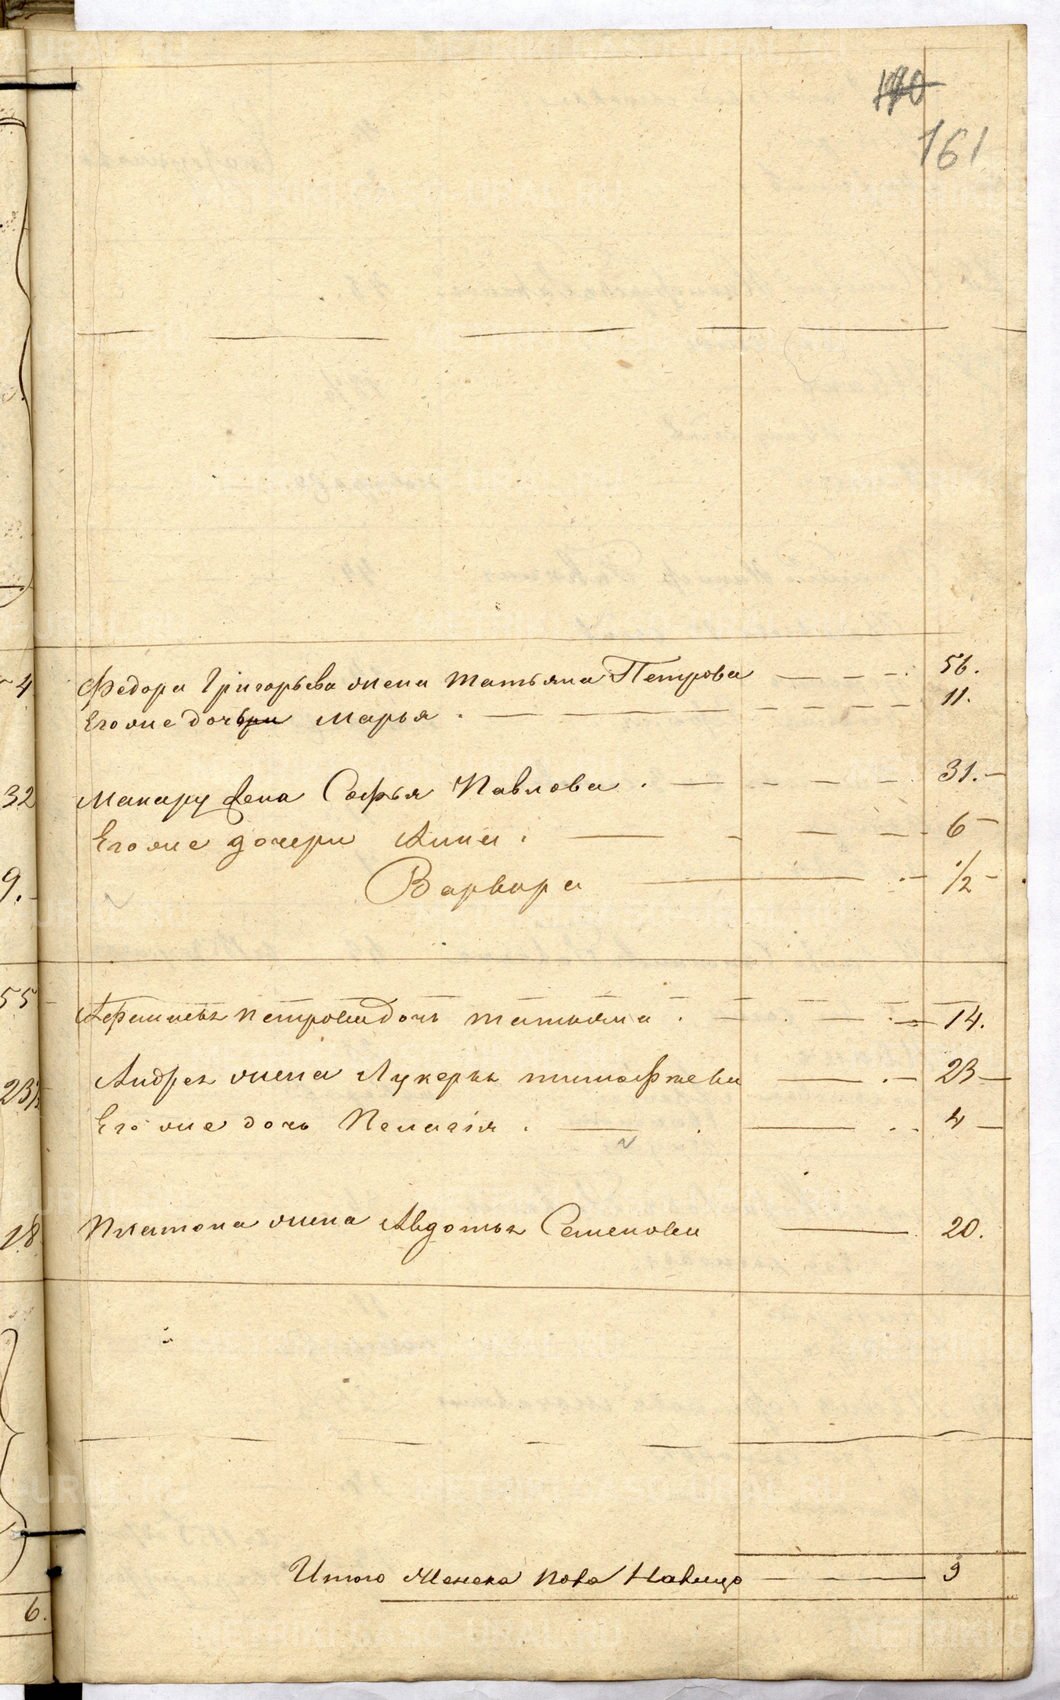 140
161
4 Федора Григорьева жена Татьяна Петрова 56.
Его же дочь Марья. 11.
32 Макара жена Софья Павлова. 31.
Его же дочери Анна. 6
9. Варвара 1/2
55 Афанасья Петрова дочь Татьяна. 14.
23 Андрея жена Лукерья Тимофеева 23
Его же дочь Пелагія. 4
18 Платона жена Авдотья Семенова 20.
Итого Женска пола На лицо 9
6.